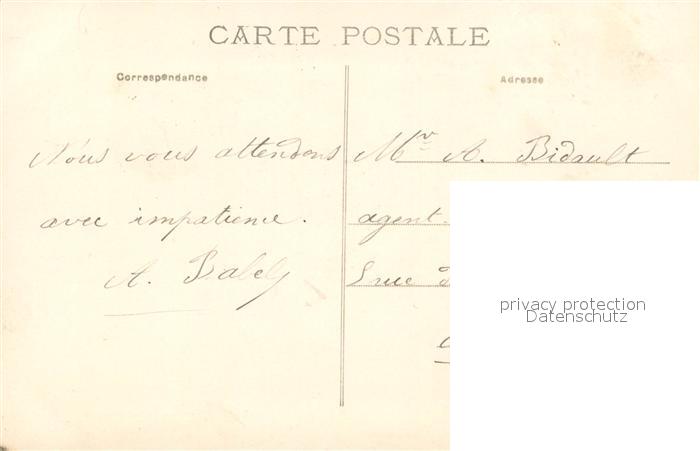 CARTE POSTALE
Correspondance
Adresse
Nous vous attendons
avec impatience.
A.
Mr A. Bidault
agent
rue
privacy protection
Datenschutz